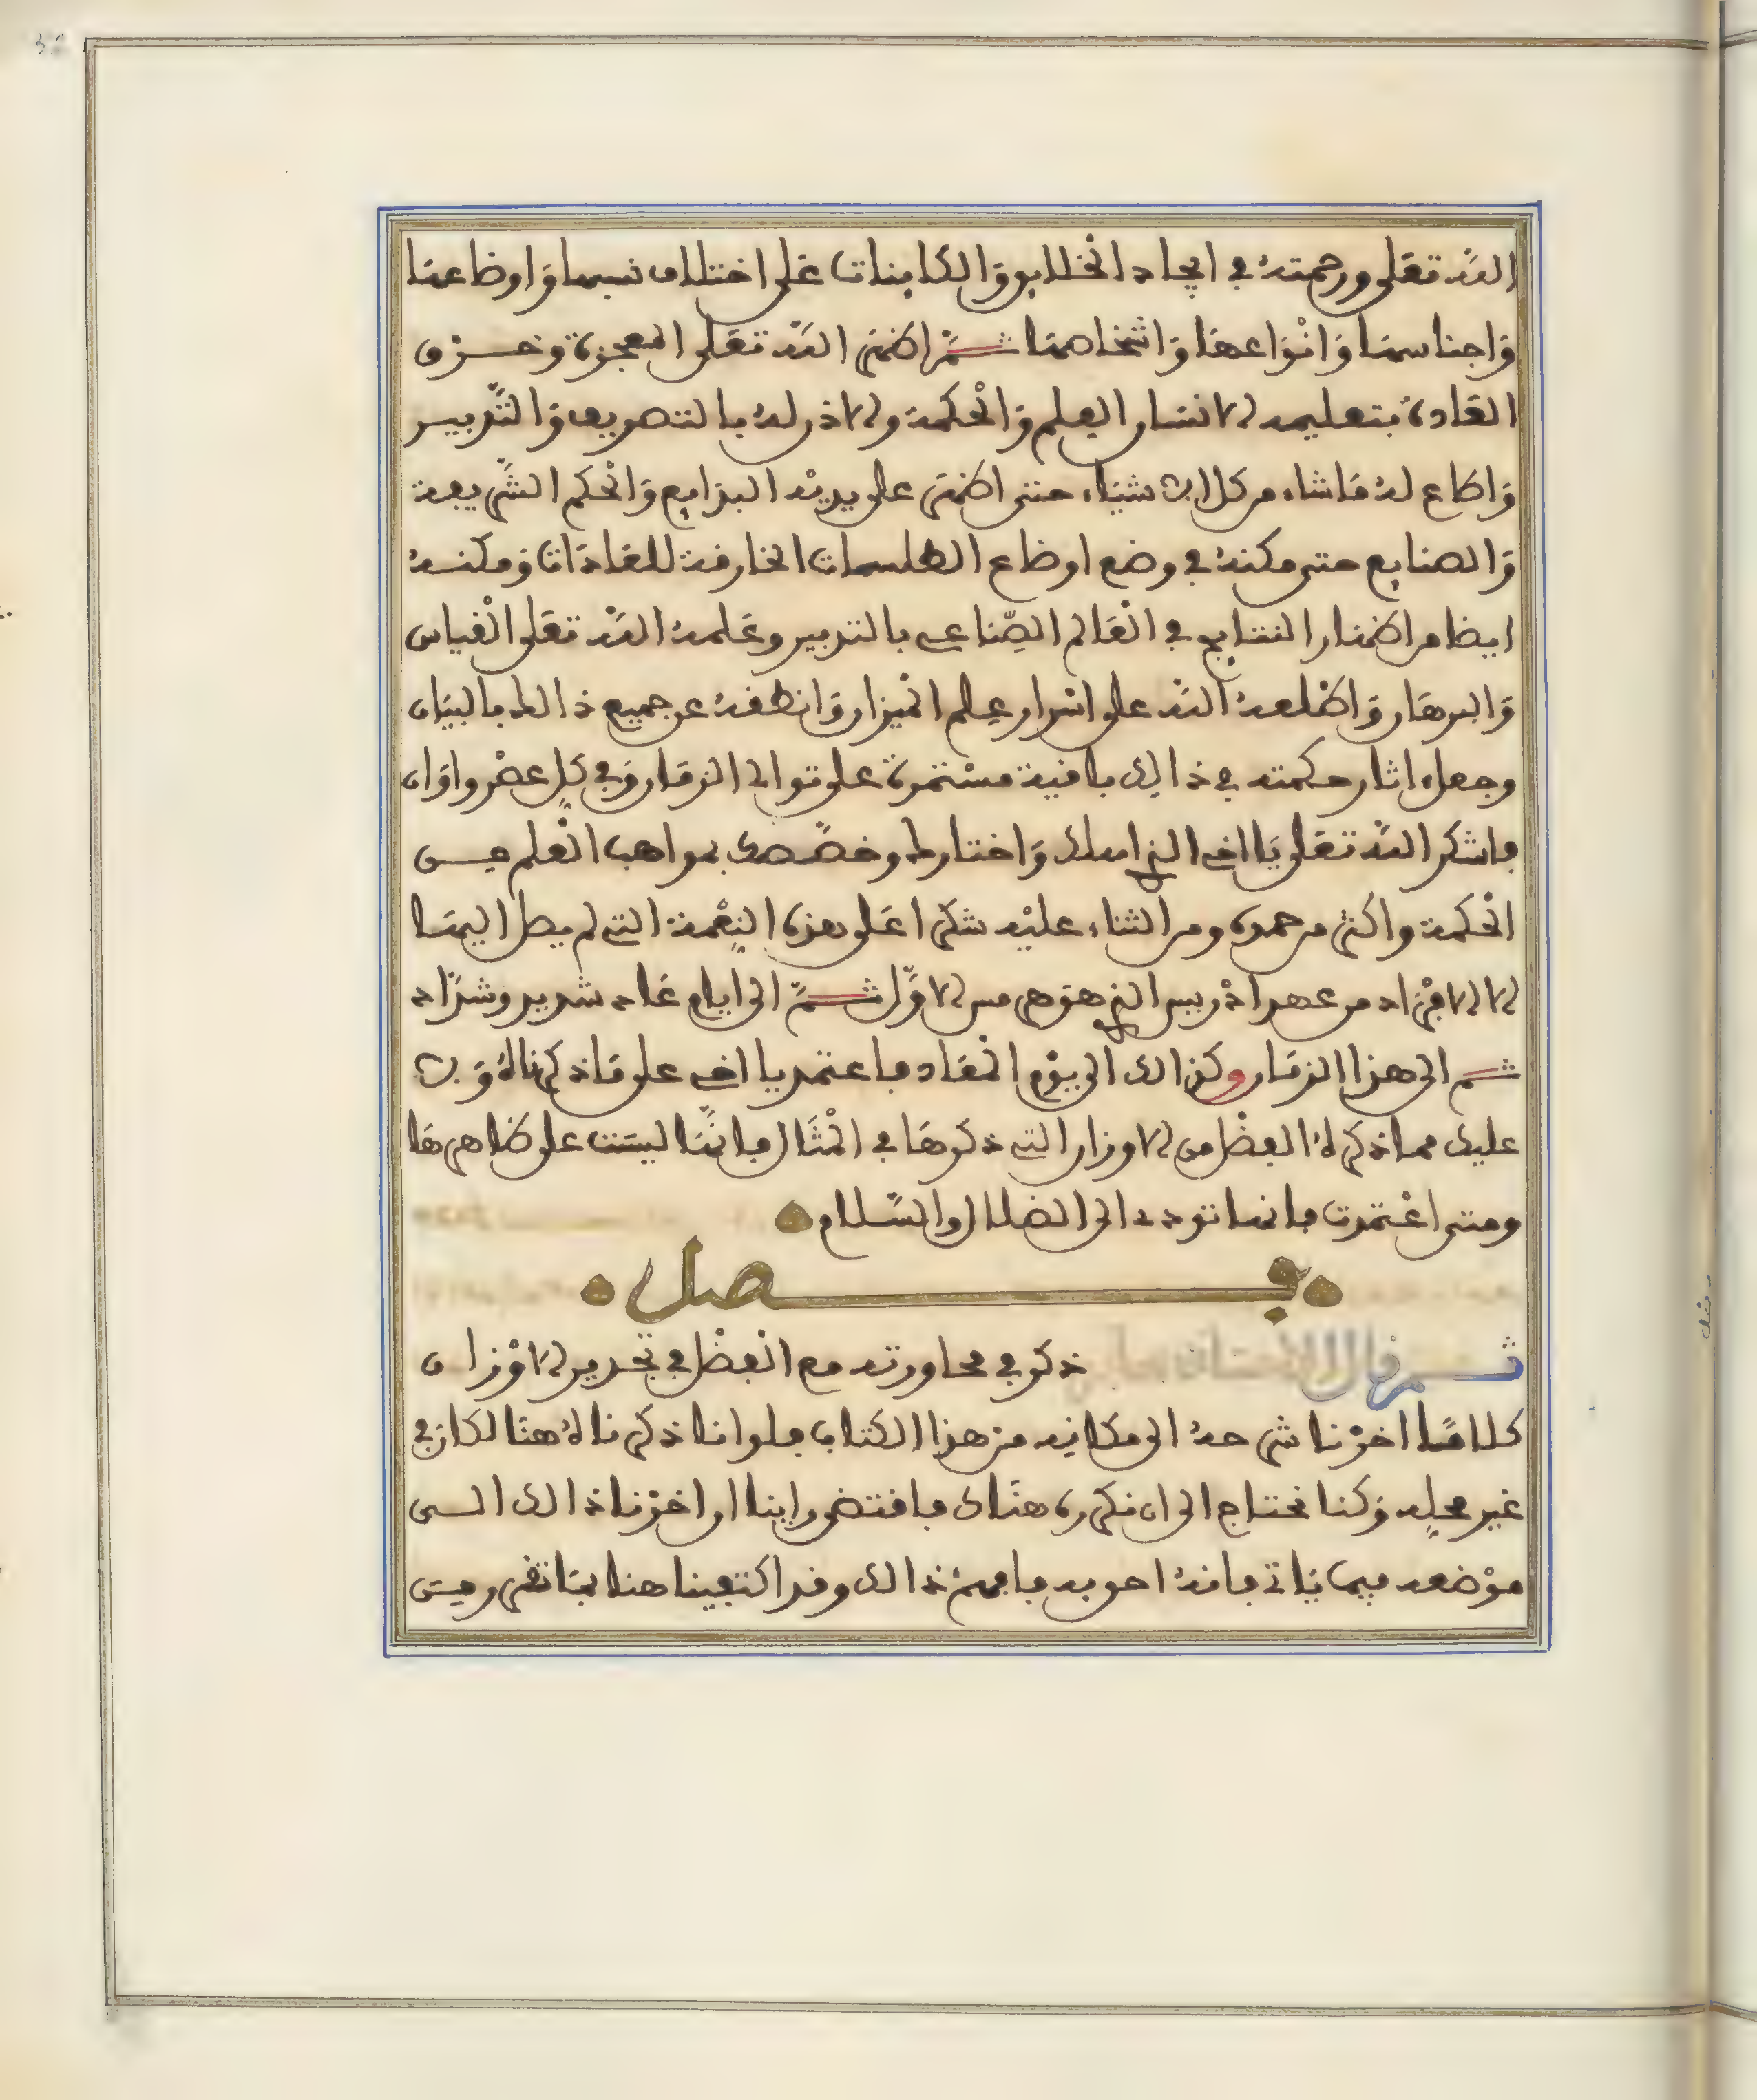 الله تعلى ورحمته في ايجاد الخلايق والكاينات على اختلاف نسبها واوضاعها
واجناسها وانواعها واشخاصها ثم اظهر الله تعلى المعجزة وخرق
العادة بتعليمه لانسان العلم والحكمة ولاذن له بالتصريف والتدبير
واطاع له ما شاء من كل شيء حتى اظهر على يديه البدايع والحكم الشريفة
والصنايع حتى مكنه في وضع اوضاع الطلسمات الخارقة للعادات ومكنه
ايضا من اظهار النتايج في العالم الصناعي بالتدبير وعلمه الله تعلى القياس
والبرهان واطلعه الله على اسرار علم الميزان وانطقه عن جميع ذالك بالبيان
وجعل اثار حكمته في ذالك باقية مستمرة على توالي الزمان وفي كل عصر واوان
فاشكر الله تعلى يا اخي الذي واختارك وخصصك بمواهب العلم من
الحكمة واكثر من حمده ومن الثناء عليه شكرا على هذه النعمة التي لم يصل اليها
لا الافراد من عهد ادريس الذي هو هرمس لاول ثم الى ايام عاد شديد وشداد
ثم الى هذا الزمان وكذالك الى يوم المعاد فاعتمد يا اخي على ما ذكرناه و
عليك مما ذكره البعض من لاوزان التي ذكرها في المثال فانها ليست على ظاهرها
ومتى اعتمدت فانها تودي الى الضلال والسلام
فصل
ثم قال ذكر في محاورته مع البعض في تحرير لاوزان
كلاما اخرنا شرحه الى مكانه من هذا الكتاب فلو اننا ذكرناه هنا لكان في
غير محله وكنا نحتاج الى ان نكرره هناك فاقتضى راينا ان اخرنا ذالك الى
موضعه فيما ياتي فانه احق به فافهم ذالك وقد اكتفينا هنا بما تقرر من